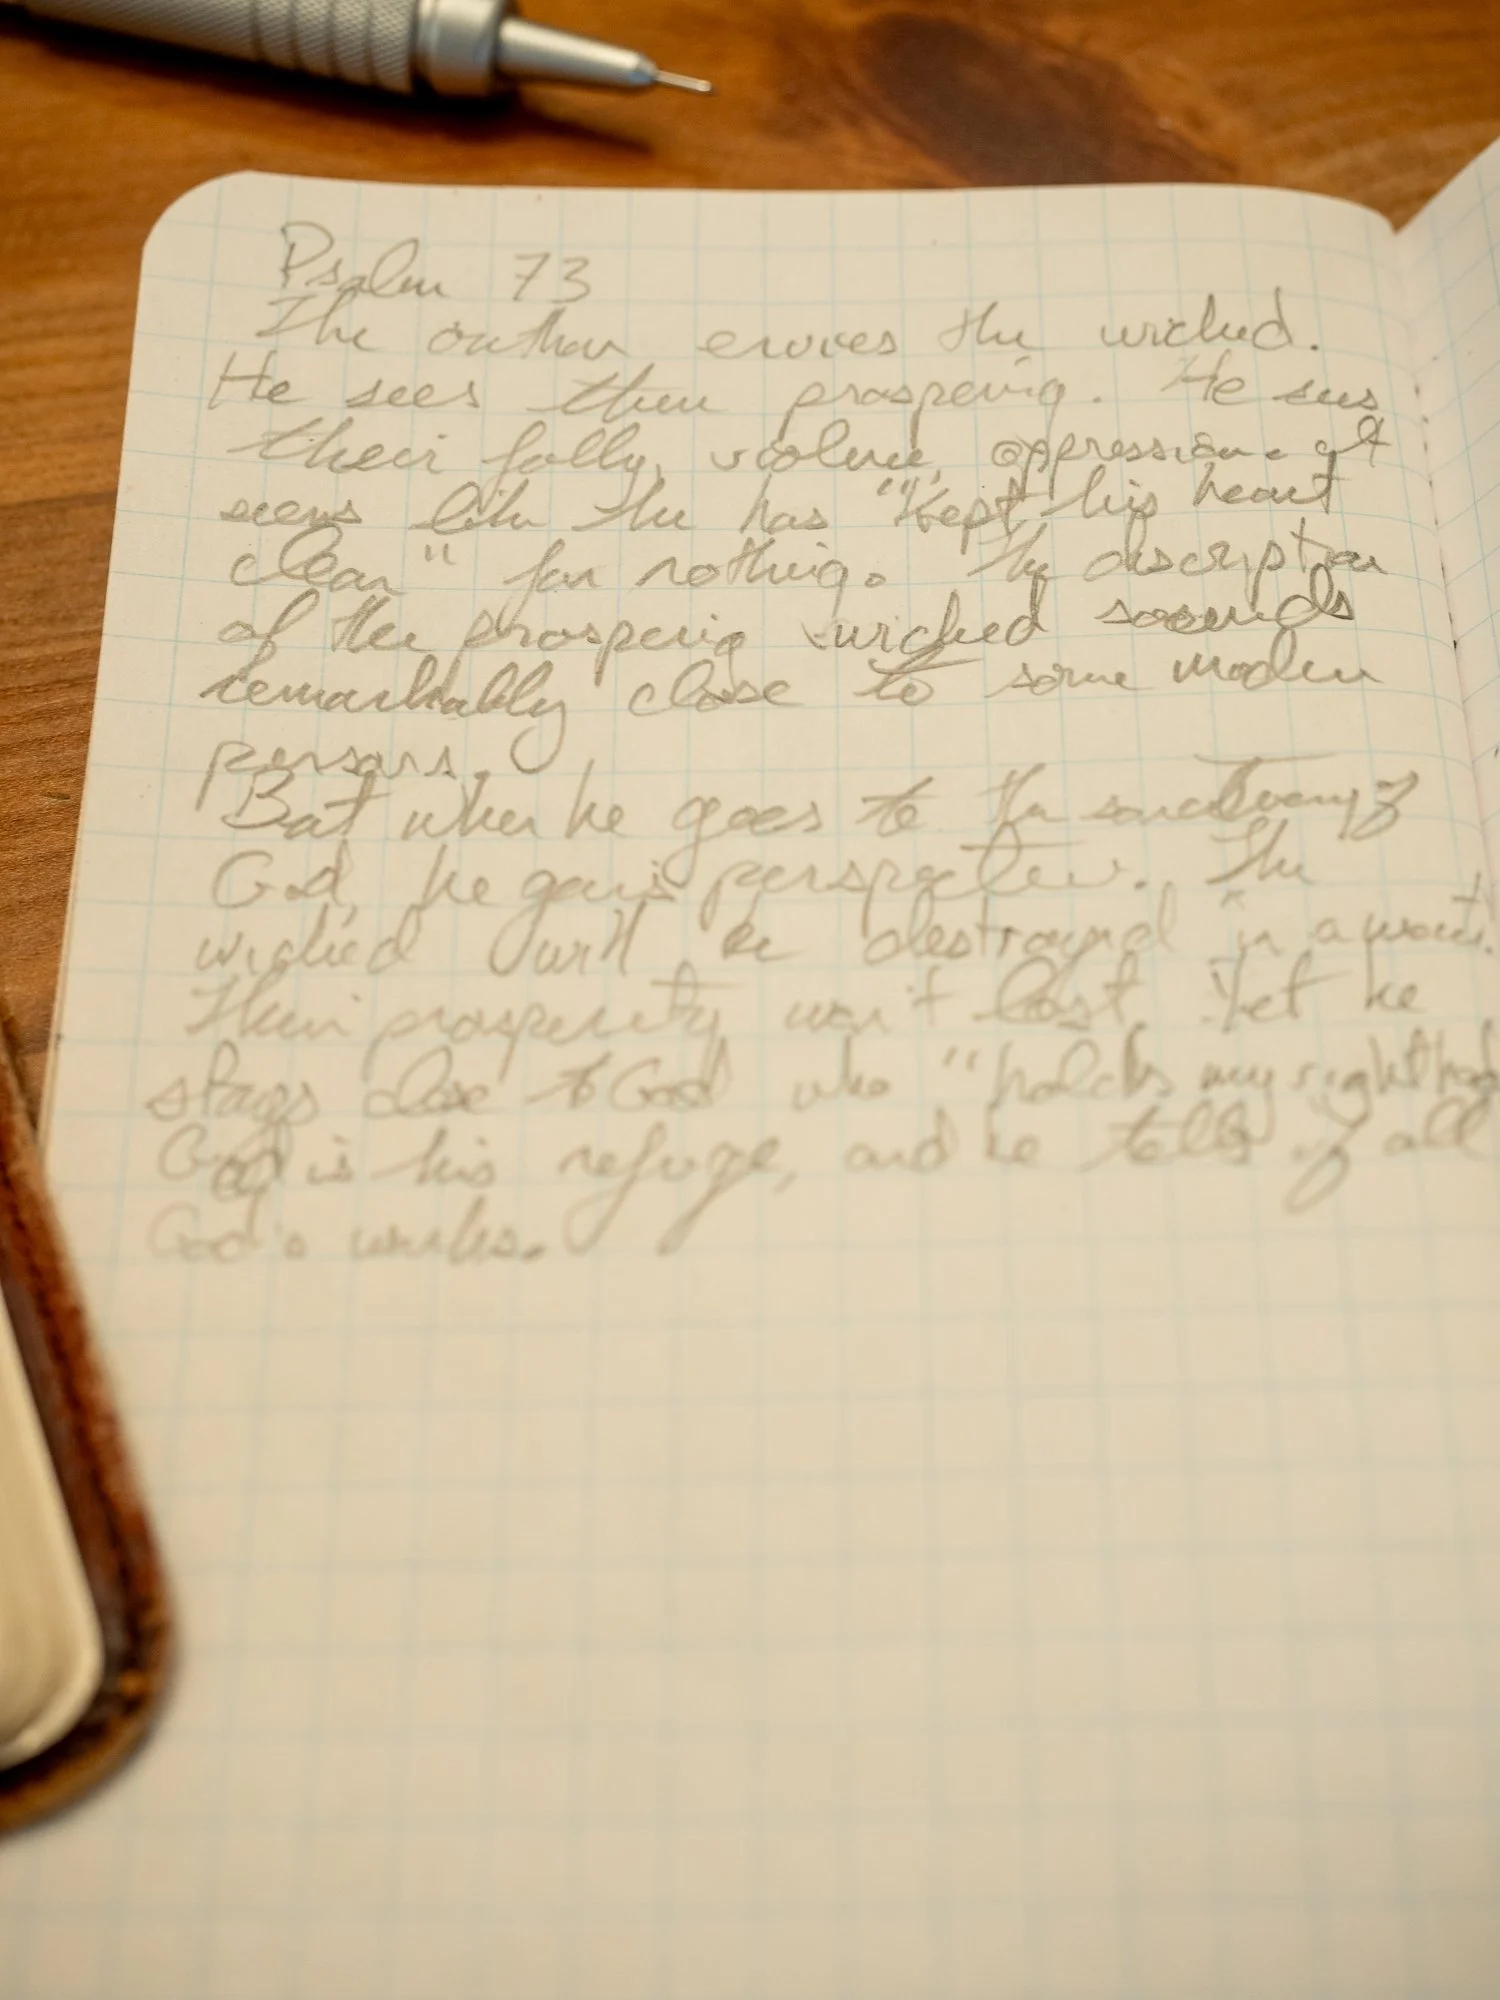 Psalm 73
The author envies the wicked.
He sees them prospering. He sees
their folly, violence, oppression. It
seems like he has "kept his heart
clean" for nothing. The discription
of the prospering wicked sounds
remarkably close to some modern
persons.
But when he goes to the sanctuary of
God, he gains perspective. The
wicked will be destroyed in a
Their prosperity won't last. Yet he
stays close to God who "holds my right hand
God is his refuge, and he tells of all
God's works.